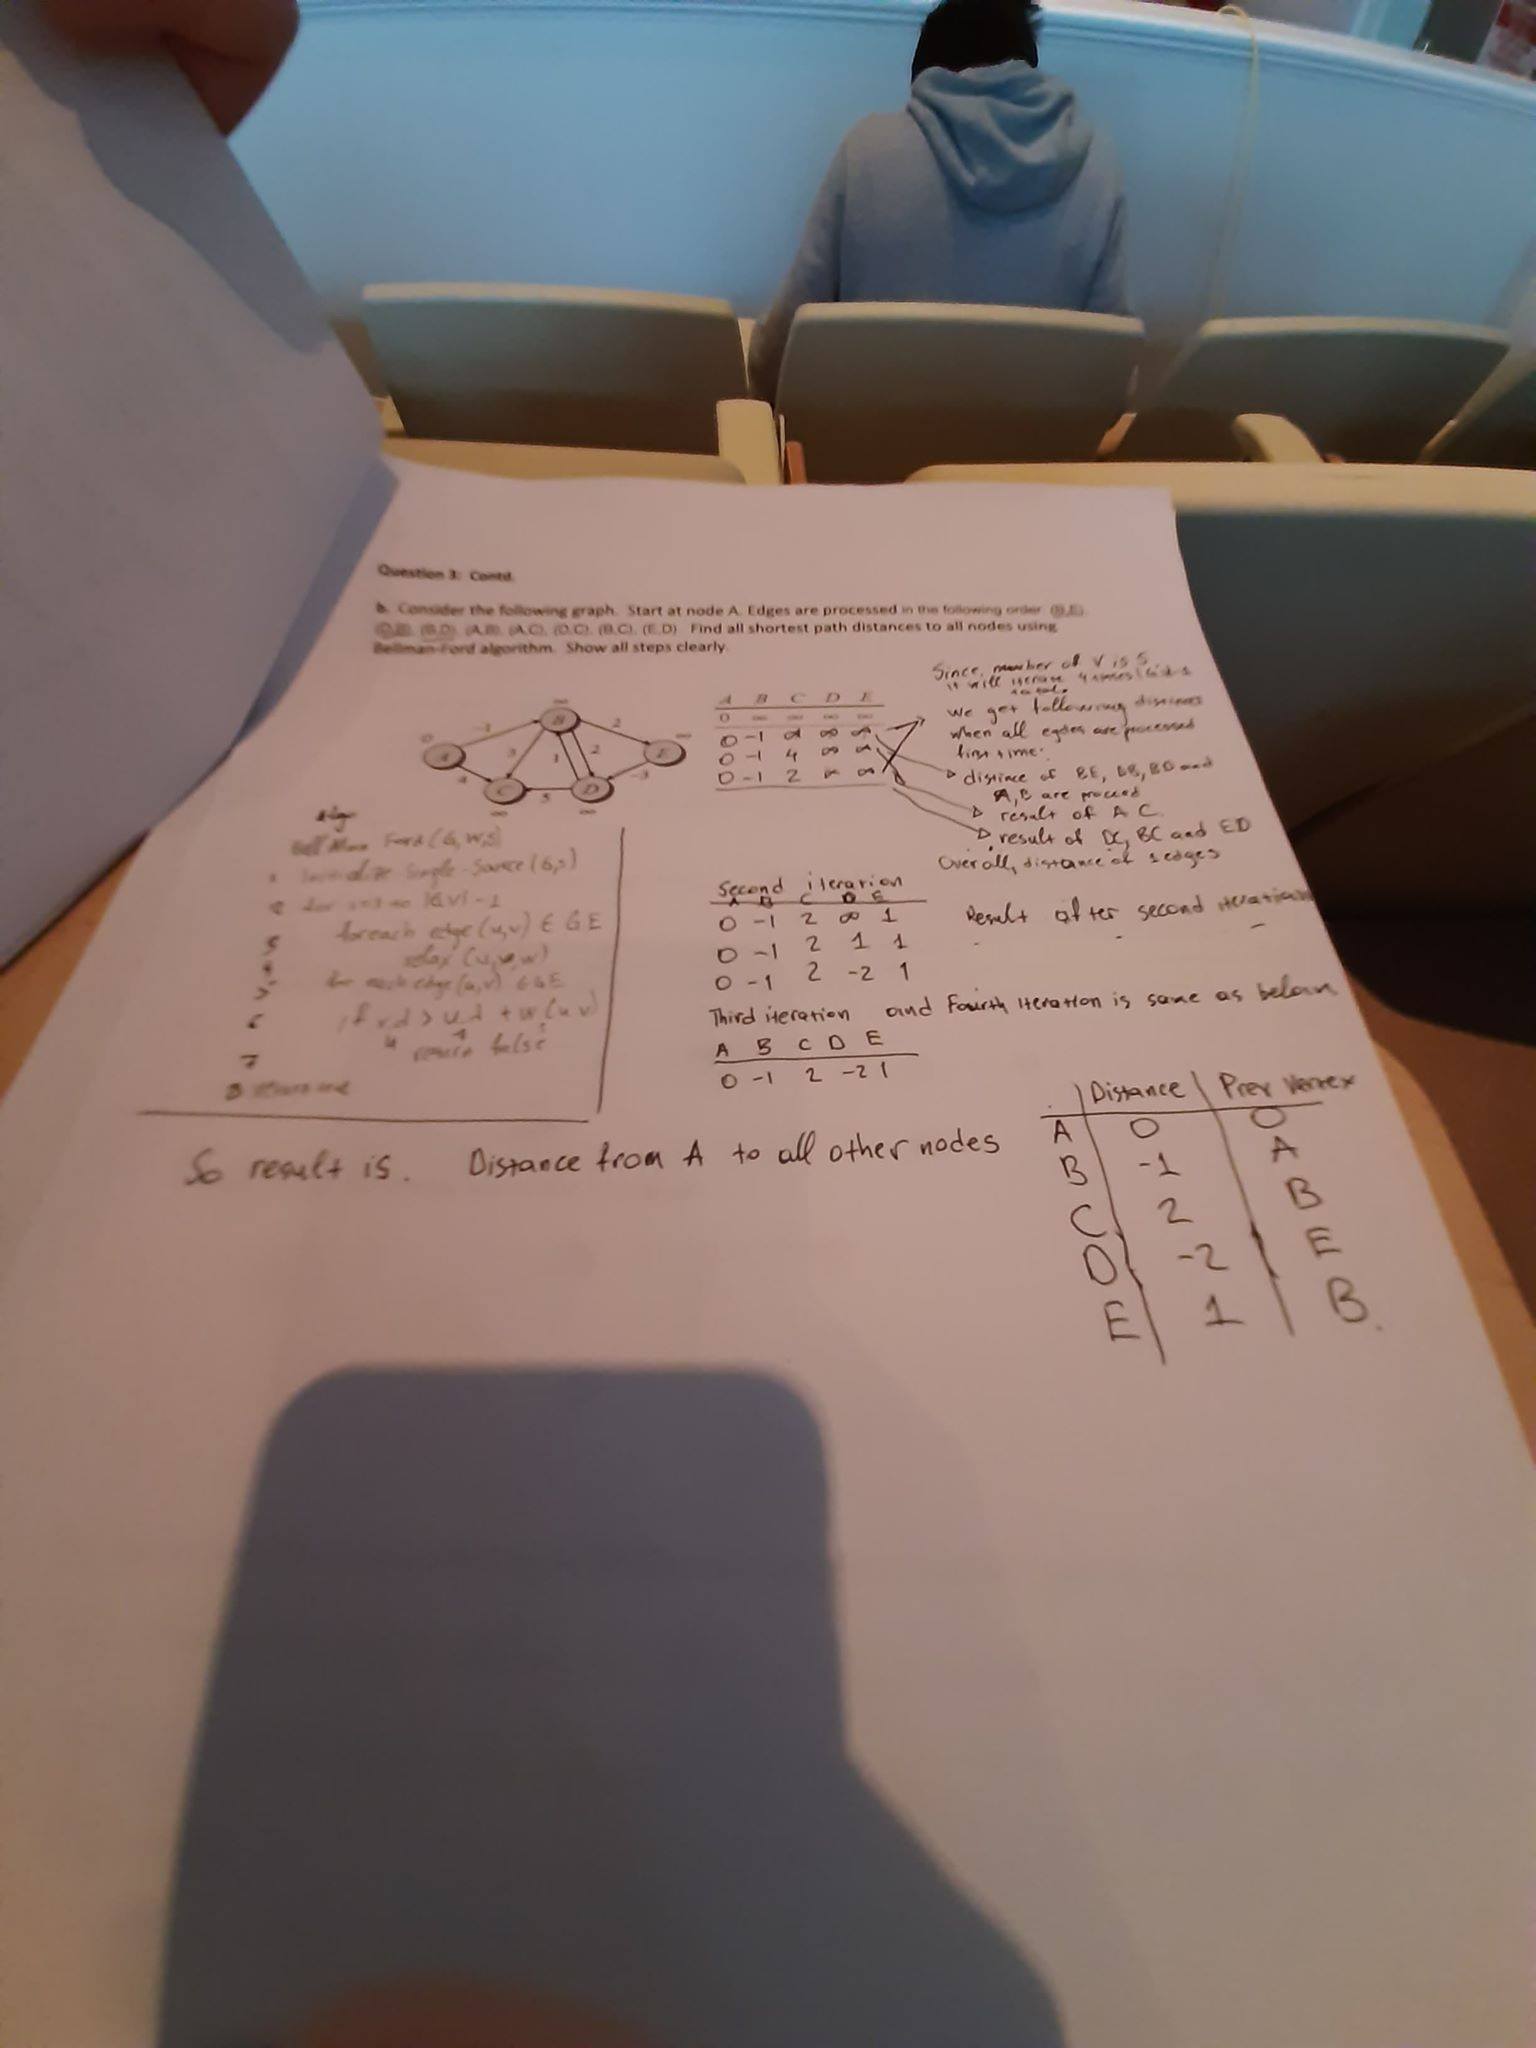 Question 3: Contd.
b. Consider the following graph. Start at node A. Edges are processed in the following order: (B,E),
(D,B), (B,D), (A,B), (A,C), (D,C), (B,C), (E,D) Find all shortest path distances to all nodes using
Bellman-Ford algorithm. Show all steps clearly.
Since, number of V is 5
it will iterate 4 times
A B C D E
0 ∞ ∞ ∞ ∞
0 -1 ∞ ∞ ∞
0 -1 4 ∞ ∞
0 -1 2 ∞ ∞
We get following distinces
when all egdes are processed
first time:
distince of BE, DB, BD and
A,B are
result of AC.
result of DC, BC and ED
Overall, distance of 1 edges
∞
B
-1
2
0
A
3
1
2
E
∞
4
-3
C
5
D
∞
∞
Algo
Bell Man Ford (G,W,S)
Initialize Single-Source (G,S)
for
foreach edge (u,v) ∈ G E
relax (u,v,w)
for each edge (u,v) ∈ G E
if v.d > u.d + w(u,v)
return false
Second iteration
A B C D E
0 -1 2 ∞ 1
0 -1 2 1 1
0 -1 2 -2 1
Result after second iteration
Third iteration and Fourth iteration is same as below
A B C D E
0 -1 2 -2 1
So result is. Distance from A to all other nodes
Distance Prev Vertex
A 0 0
B -1 A
C 2 B
D -2 E
E 1 B.